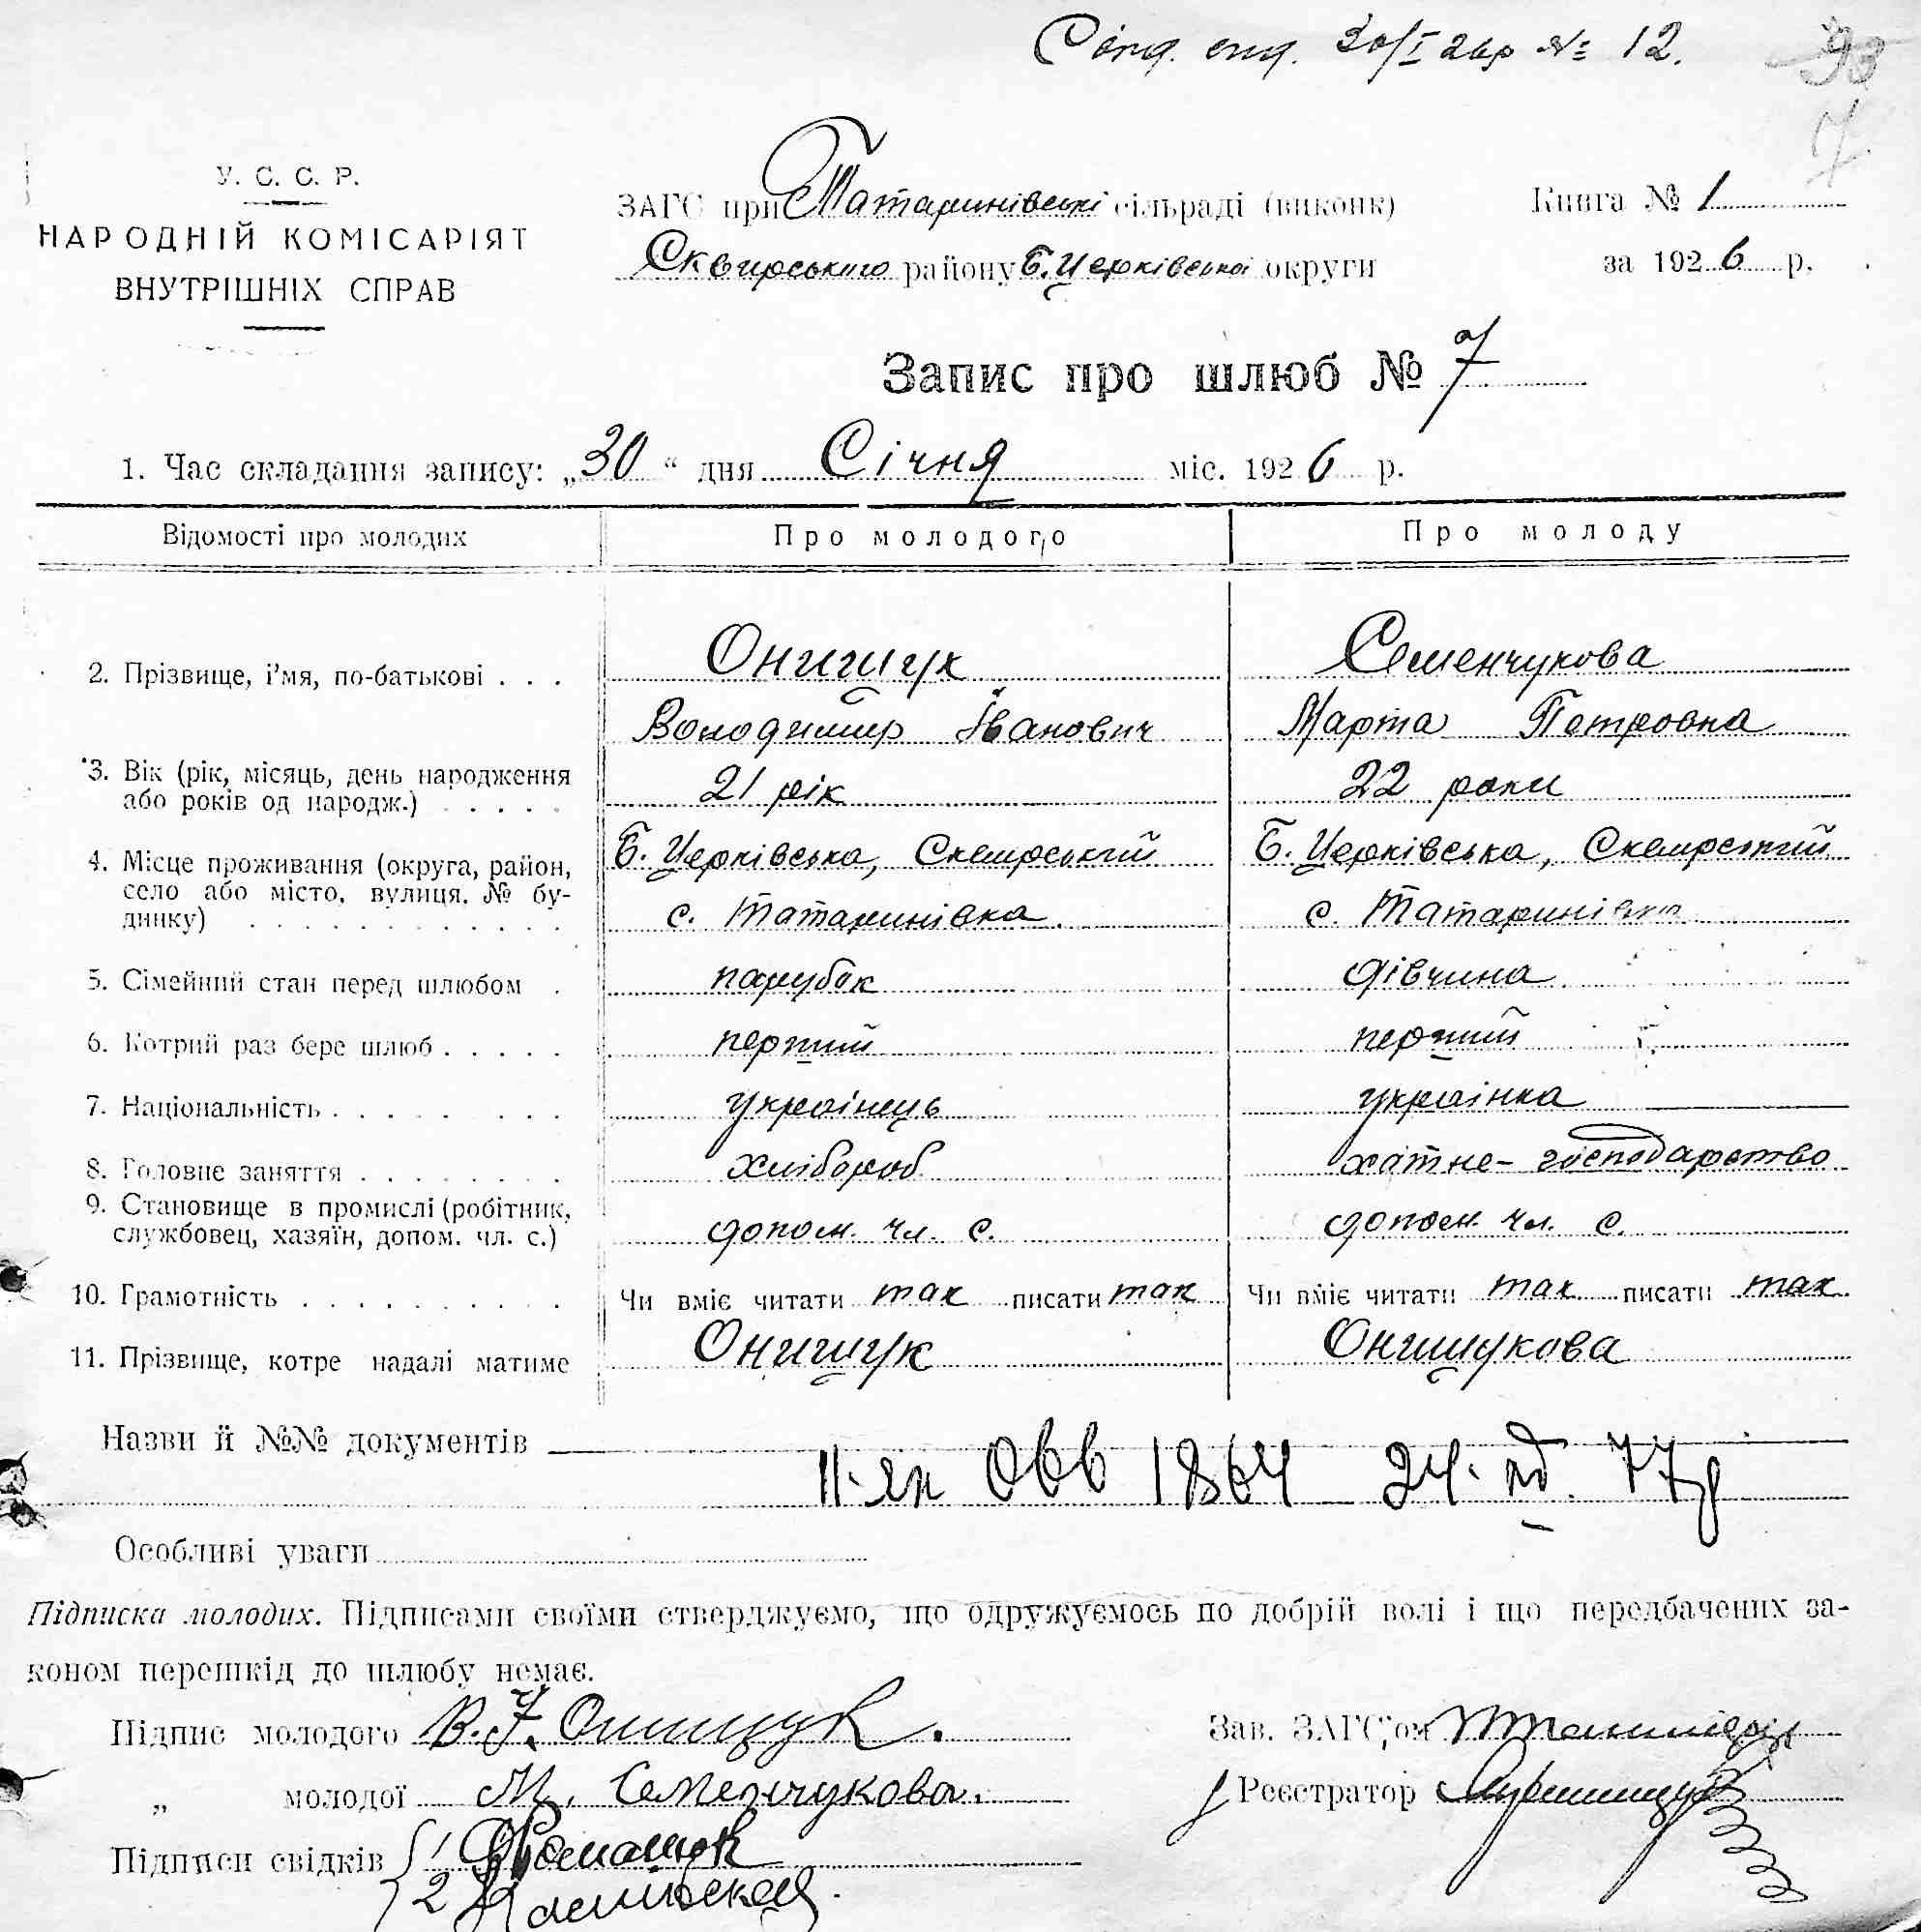 30/I 26р № 12.
93
7
У. С. С. Р.
НАРОДНІЙ КОМІСАРІЯТ
ВНУТРІШНІХ СПРАВ
ЗАГС при Татаринівські сільраді (виконк)
Сквирського району Б. Церківської округи
Книга № 1
за 1926 р.
Запис про шлюб № 7
1. Час складання запису: „30“ дня Січня міс. 1926 р.
Відомості про молодих Про молодого Про молоду
2. Прізвище, і'мя, по-батькові . . . Онищук Семенчукова
Володимир Іванович Марта Петровна
3. Вік (рік, місяць, день народження
або років од народж.) . . . . . 21 рік 22 роки
4. Місце проживання (округа, район, Б. Церківська, Сквирський Б. Церківська, Сквирський
село або місто, вулиця, № бу-
динку) . . . . . . . . . . . . с. Татаринівка с. Татаринівка
5. Сімейний стан перед шлюбом . парубок дівчина
6. Котрий раз бере шлюб . . . . . перший перший
7. Національність . . . . . . . . українець українка
8. Головне заняття . . . . . . . . хлібороб хатне-господарство
9. Становище в промислі (робітник,
службовец, хазяїн, допом. чл. с.) допом. чл. с. допом. чл. с.
10. Грамотність . . . . . . . . . . Чи вміє читати так писати так Чи вміє читати так писати так
11. Прізвище, котре надалі матиме Онищук Онищукова
Назви й №№ документів
1864 24. 77
Особливі уваги
Підписка молодих. Підписами своїми стверджуємо, що одружуємось по добрій волі і що передбачених за-
коном перешкід до шлюбу немає.
Підпис молодого В. І. Онищук.
„ молодої М. Семенчукова.
Підписи свідків 1
2
Зав. ЗАГС'ом
Реєстратор